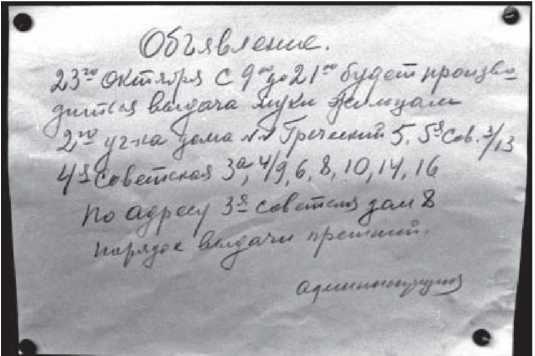 Объявление.
23го октября с 9 00 до 21 00 будет произво-
дится выдача муки жильцам
2го уч-ка дома №№ Греческий 5, 5я Сов. 3/13
4я Советская 3а, 4/9, 6, 8, 10, 14, 16
по адресу 3я советская дом 8
порядок выдачи прежний.
администрация